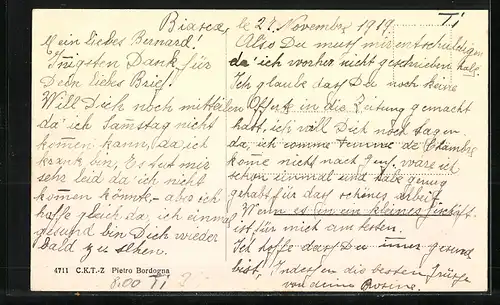 Biasca, le 27. Novembre 1919.
TI
Mein liebes Bernard!
Innigsten Dank für
Dein liebes Brief!
Will Dich noch mitteilen
da' ich Samstag nicht
kommen kann, da ich
krank bin, Es tut mir
sehr leid da ich nicht
kommen könnte - also ich
hoffe gleich da, ich einmal
gesund bin Dich wieder
bald zu sehen.
Also Du must mir entschuldigen
da' ich vorher nicht geschrieben habe
Ich glaube dass Du noch keine
Offert in die Zeitung gemacht
hast, ich will Dich noch sagen
da, ich comme femme de Chambre
kome nicht nach Genf. wäre ich
schon einmal und habe genug
gehabt für das schönes arbeit.
Wenn es in ein kleines Geschäft
ist für mich am besten.
Ich hoffe dass Du immer gesund
bist, Indessen die besten Grüsse
von deine Rosine.
4711 C.K.T.-Z Pietro Bordogna
8.00 TI